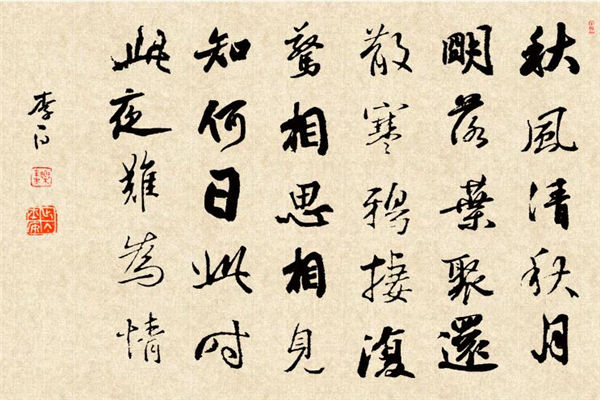 秋風清秋月
明落葉聚還
散寒鴉棲復
驚相思相見
知何日此时
此夜難為情
李白